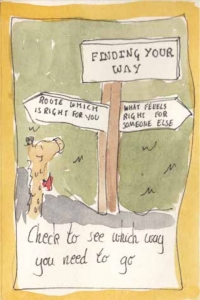 FINDING YOUR
WAY
ROUTE WHICH
IS RIGHT FOR YOU
WHAT FEELS
RIGHT FOR
SOMEONE ELSE
Check to see which way
you need to go